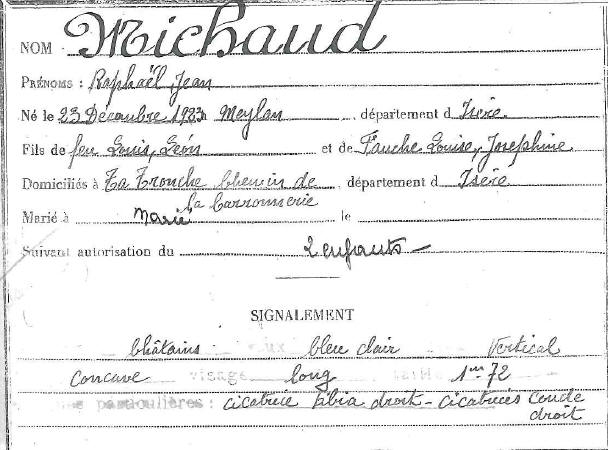 NOM Michaud
PRÉNOMS : Raphaël, Jean
Né le 23 Décembre à Meylan, département d Isère
Fils de feu Louis, Léon et de Fauche Louise, Josephine
Domiciliés à La Tronche chemin de, département d Isère
la Carronnerie
Marié à Marié le
Suivant autorisation du 2 enfants
SIGNALEMENT
châtains bleu clair Vertical
concave visage long 1m 72
particulières : cicatrice tibia droit - cicatrices coude
droit